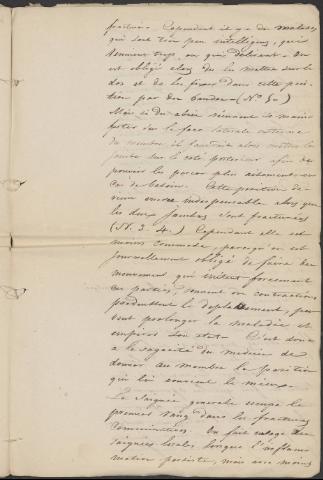 fracture. Cependant il y a des malades
qui sont très peu intelligens, qui
remuent trop, ou qui délirent. On
est obligé alors de les mettre sur le
dos et de les fixer dans cette posi-
tion par des bandes (N° 5.)
Mais si des abcès venaient à mani-
fester sur la face latérale externe
du membre il faudrait alors mettre la
jambe sur le coté postérieur afin de
pouvoir les percer plus aisément en
cas de besoin. Cette position de-
vient encore indispensable alors que
les deux jambes sont fracturées
(N. 3. 4.) Cependant elle est
moins commode, parcequ'on est
journellement obligé de faire des
mouvemens qui irritent forcement
ces parties, tiennent en contractions
produisent le déplacement, peu-
vent prolonger la maladie et
empirer son état. C'est donc
a la sagacité du médecin de
donner au membre la position
qui lui convient le mieux.
La Saignée générale occupe le
premier rang dans les fractures
comminutives. On fait usage des
saignées locales lorsque l'inflam-
mation persiste, mais avec moins